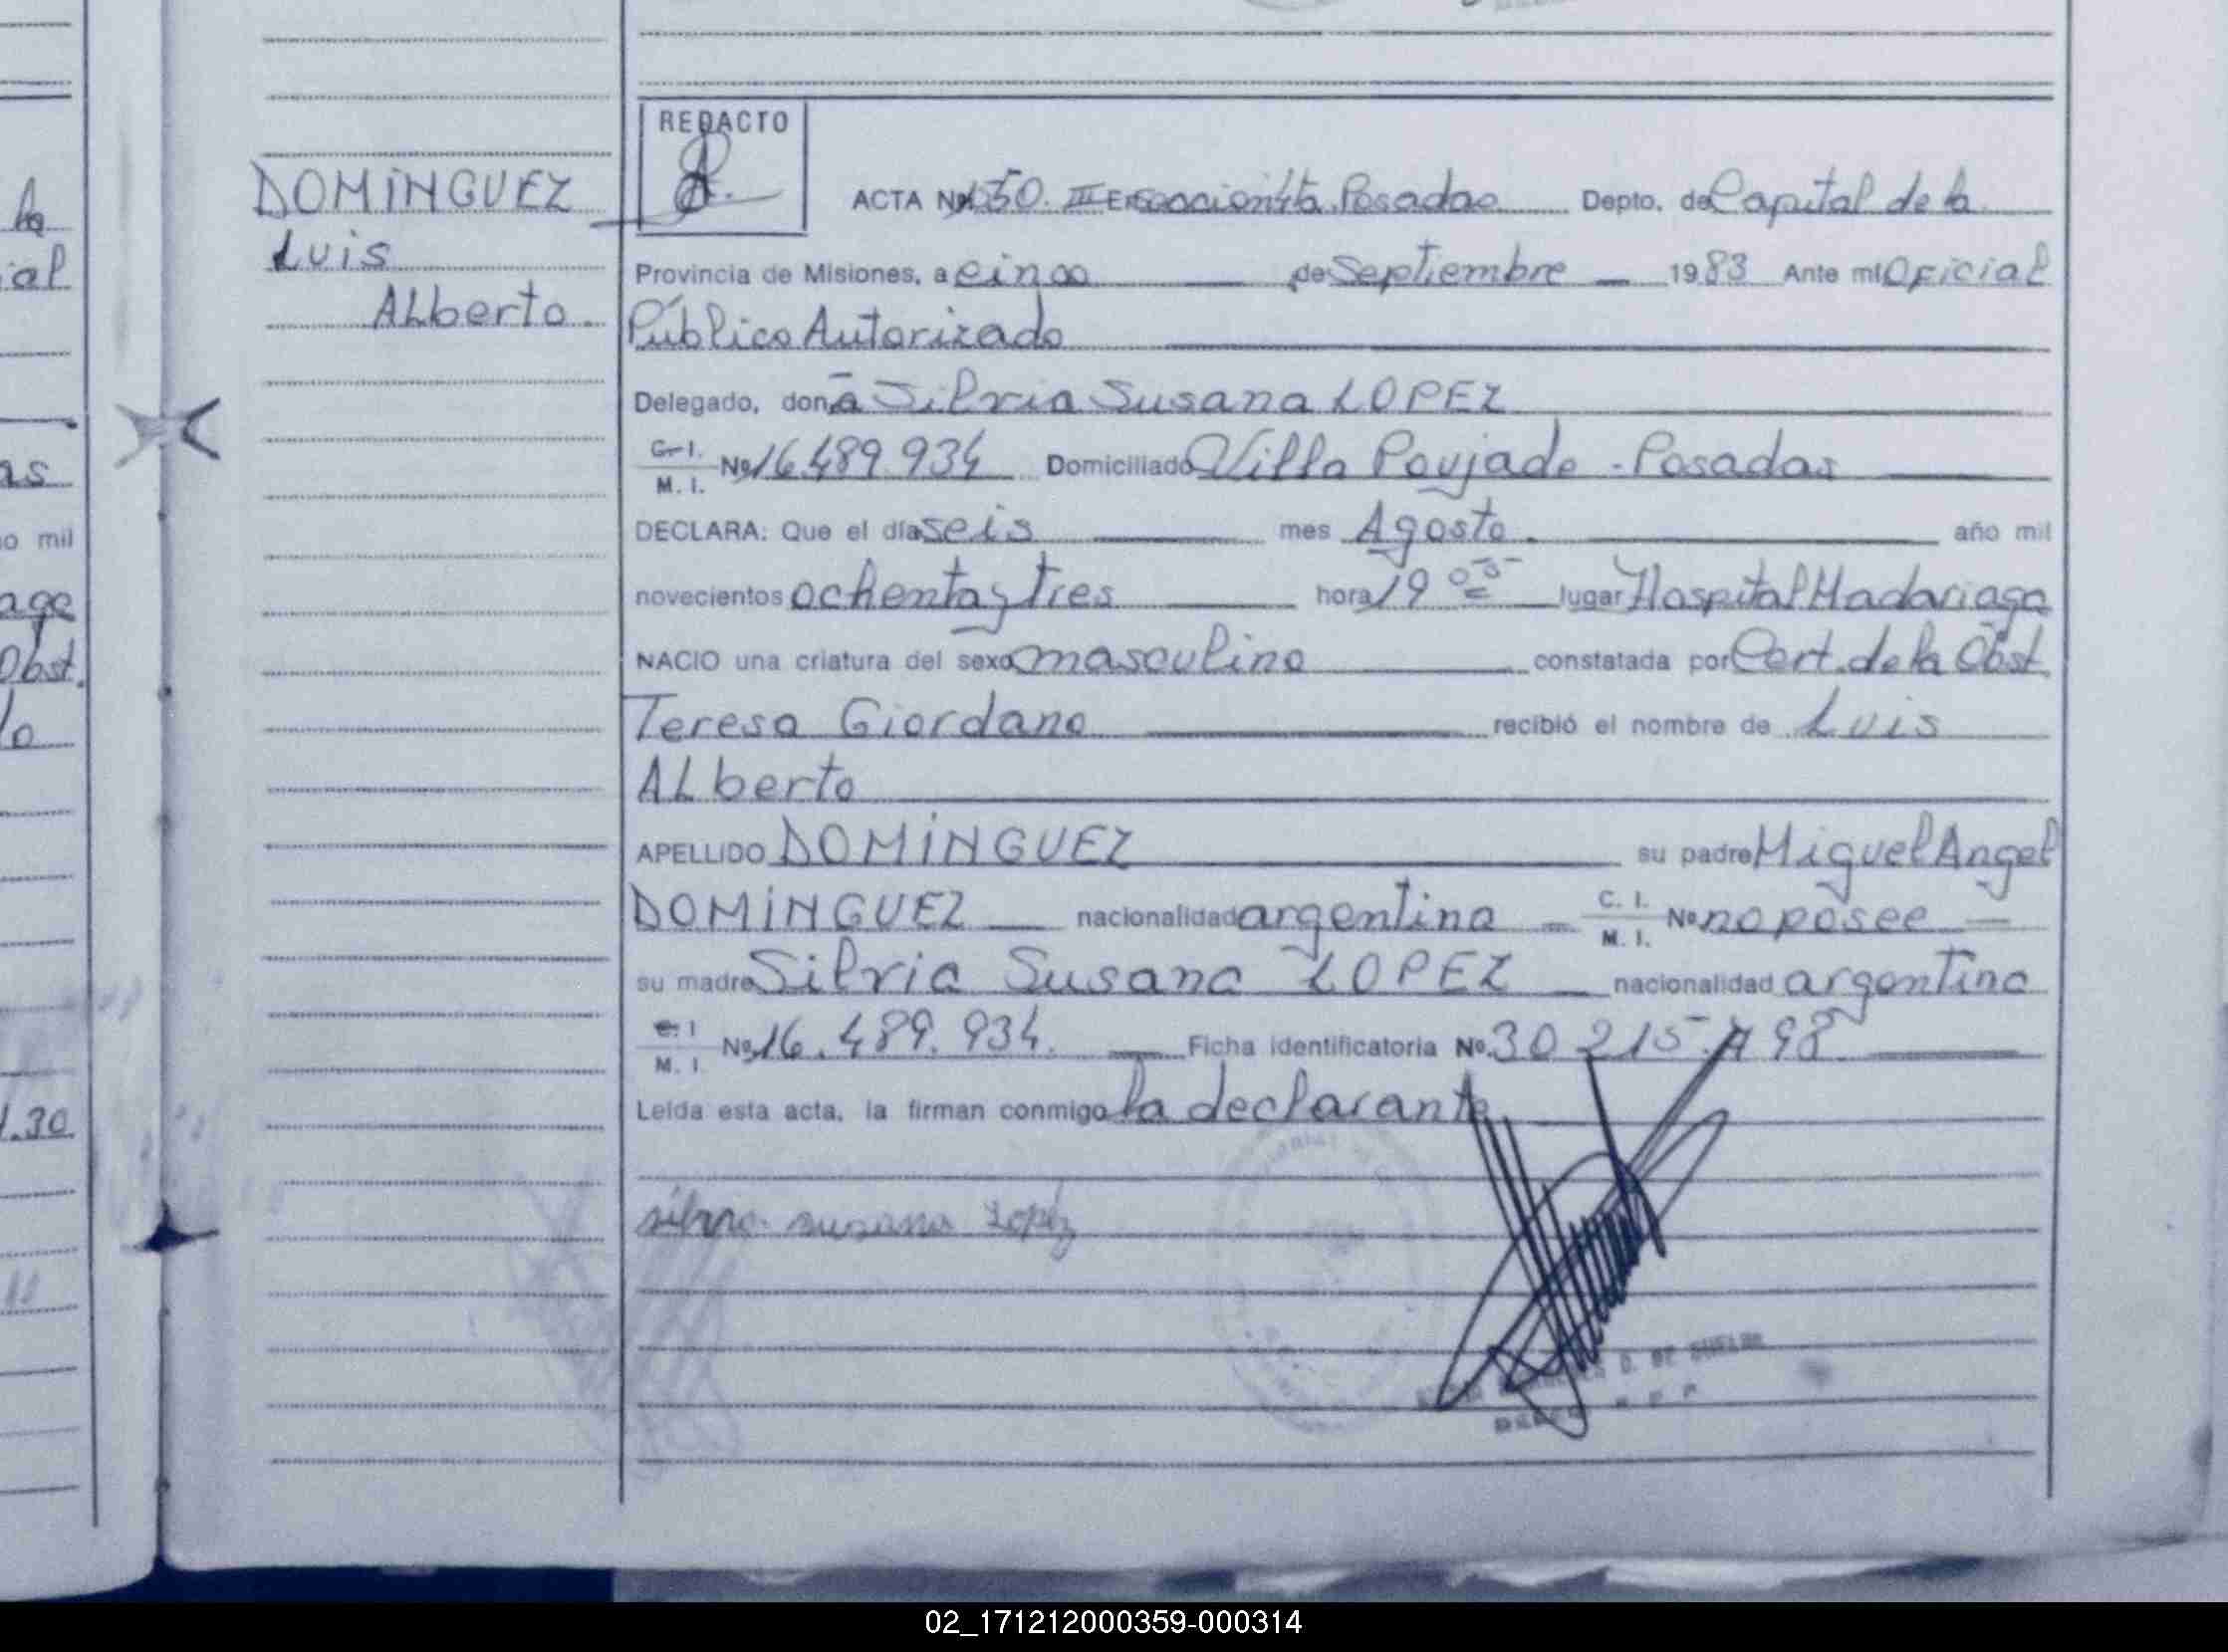 la
ial
as
o mil
age
Obst.
lo
1.30
DOMINGUEZ
Luis
ALberto.
REDACTO
ACTA Nº 1.50. III Sección 4ta Posadas Depto. de Capital de la
Provincia de Misiones, a cinco de Septiembre 1983 Ante mí Oficial
Público Autorizado
Delegado, doña Silvia Susana LOPEZ
C. I.
M. I.
Nº 16.489.934 Domiciliado Villa Poujade - Posadas
DECLARA: Que el día seis mes Agosto. año mil
novecientos ochenta y tres hora 19 05 lugar Hospital Madariaga
NACIO una criatura del sexo masculino constatada por Cert. de la Obst.
Teresa Giordano recibió el nombre de Luis
ALberto
APELLIDO DOMINGUEZ su padre Miguel Angel
DOMINGUEZ nacionalidad argentina C. I. M. I. Nº no posee
su madre Silvia Susana LOPEZ nacionalidad argentina
C. I.
M. I.
Nº 16.489.934. Ficha identificatoria Nº. 30 215 98
Leída esta acta, la firman conmigo la declarante
silvia susana Lopez
D. DE
02_171212000359-000314